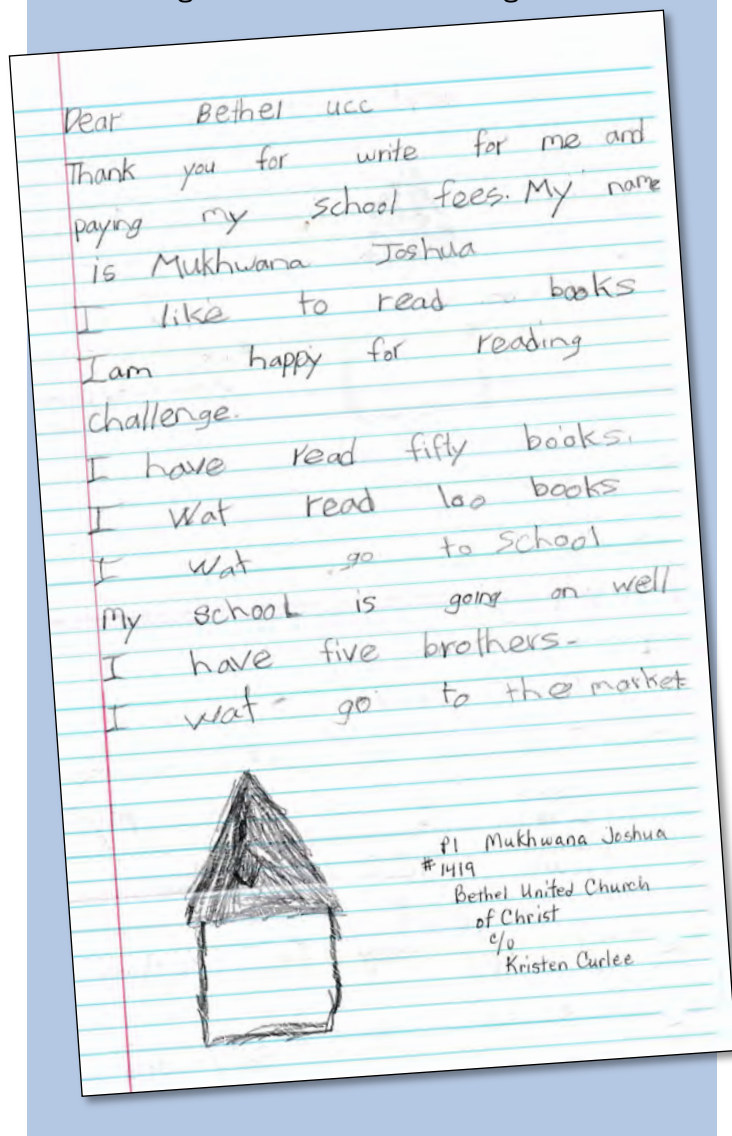 Dear Bethel ucc
Thank you for write for me and
paying my school fees. My name
is Mukhwana Joshua
I like to read books
I am happy for reading
challenge.
I have read fifty books.
I Wat read 100 books
I Wat go to School
My school is going on well
I have five brothers-
I wat go to the market
P1 Mukhwana Joshua
#1419
Bethel United Church
of Christ
c/o
Kristen Curlee